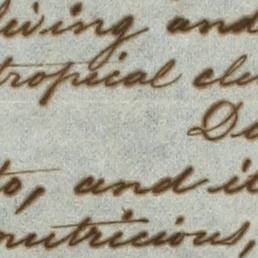 living and
tropical cli
Da
to, and it
nutricious,